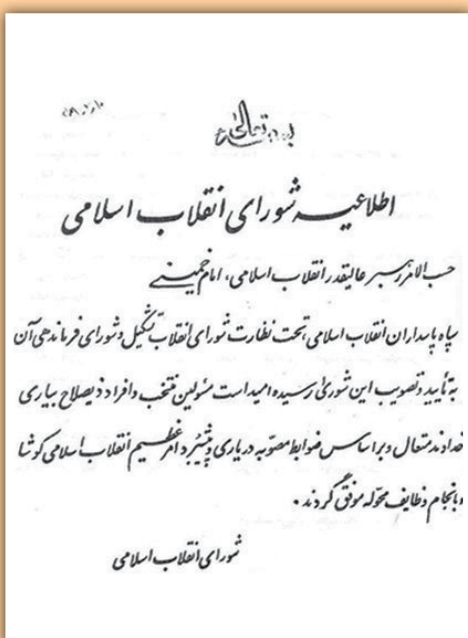 بسمه تعالی
اطلاعیه شورای انقلاب اسلامی
حسب الامر رهبر عالیقدر انقلاب اسلامی، امام خمینی
سپاه پاسداران انقلاب اسلامی، تحت نظارت شورای انقلاب تشکیل و شورای فرماندهی آن
به تأیید و تصویب این شوری رسیده امید است مسئولین منتخب و افراد ذیصلاح بیاری
خداوند متعال و براساس ضوابط مصوبه در یاری و پیشبرد امر عظیم انقلاب اسلامی کوشا
و بانجام وظایف محوله موفق گردند.
شورای انقلاب اسلامی